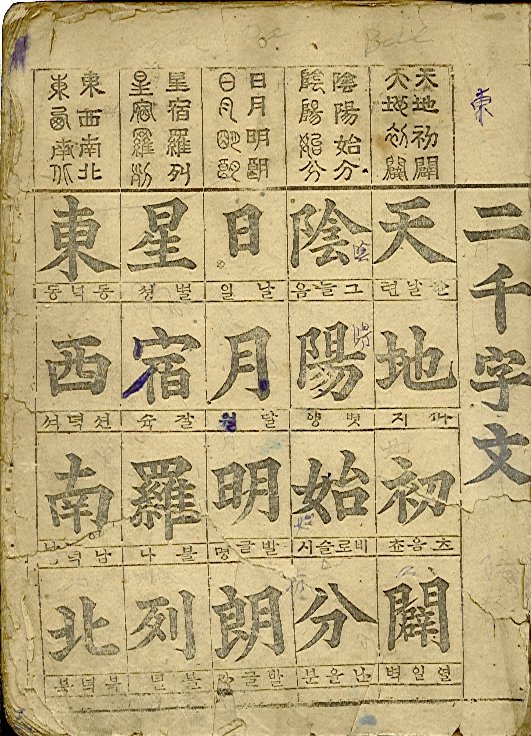 東
二千字文
天地初闢
天地初闢
陰陽始分
陰陽始分
日月明朗
日月明朗
星宿羅列
星宿羅列
東西南北
東西南北
天
한날텬
地
지
初
츠음쵸
闢
열일벽
陰
그늘음
陽
볏양
始
비로슬시
分
난을분
日
날일
月
달월
明
발글명
朗
발글
星
별셩
宿
잘슉
羅
불나
列
東
동녁동
西
션녁셔
南
남녁
北
북녁북